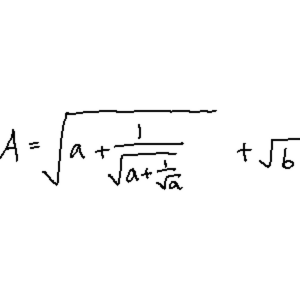 A = √(a + 1/√(a + 1/√a)) + √b